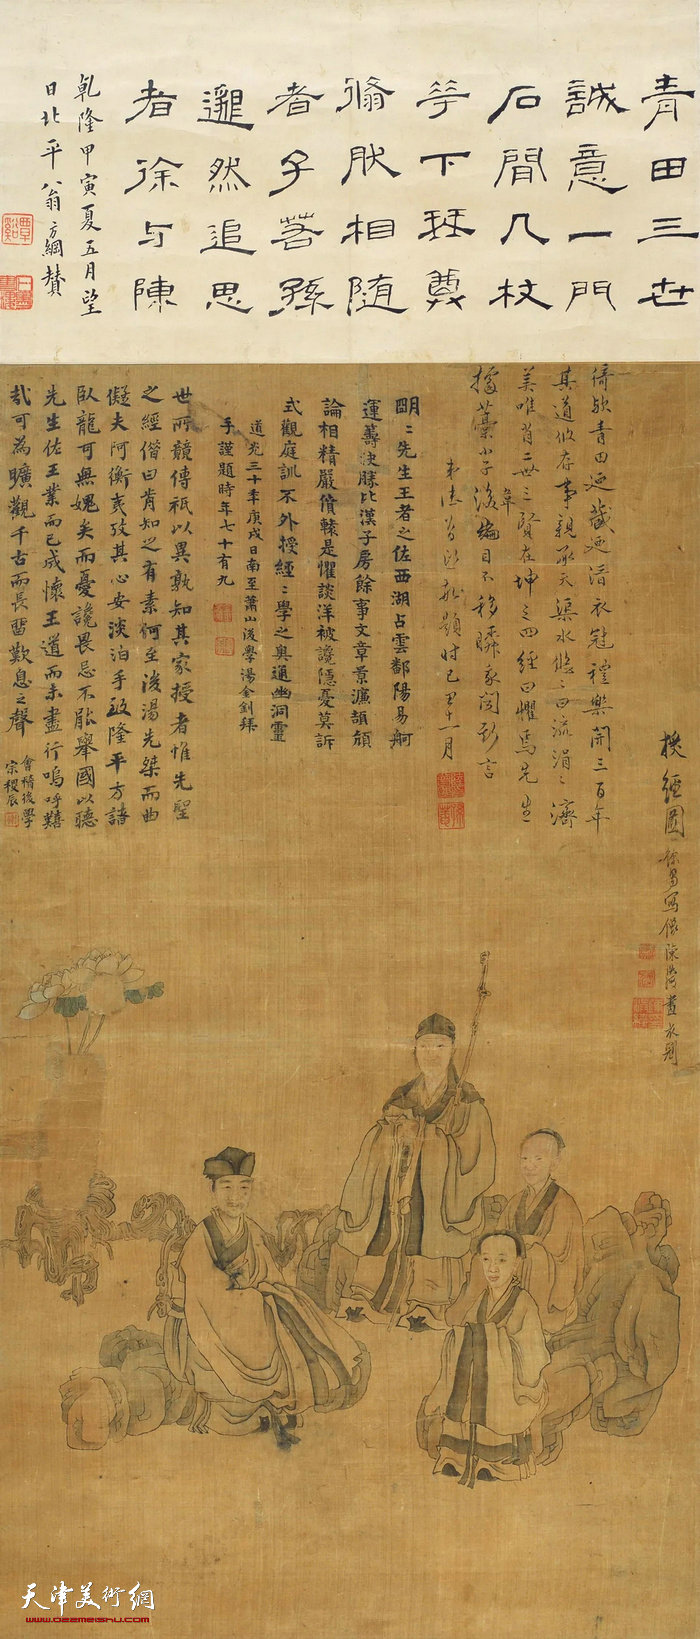 青田三世
誠意一門
石間几杖
花下琹尊
翛肰相隨
者子若孫
邈然追思
者徐与陳
乾隆甲寅夏五月望
日北平翁方綱贊
授經圖
徐易寫像陳洪綬畫衣劂
猗歟青田
衣冠禮樂開三百年
其道攸存事親承天渠水悠悠曰流涓涓濟
美唯肖二世三賢在坤之四經曰懼焉先生
題時己丑十一月
明明先生王者之佐西湖占雲鄱陽易舸
運籌決勝比漢子房餘事文章景濂頡頏
論相精嚴僨轅是懼談洋被讒隱憂莫訴
式觀庭訓不外授經經學之奧通幽洞靈
道光三十年庚戌日南至蕭山後學湯金釗拜
手謹題時年七十有九
世所競傳祇以異孰知其家授者惟先聖
之經僭曰肯知之有素何至後湯先桀而曲
儗夫阿衡夷攷其心安淡泊手致隆平方諸
臥龍可無媿矣而憂讒畏忌不能舉國以聽
先生佐王業而已成懷王道而未盡行嗚呼囏
哉可為曠觀千古而長畱歎息之聲
會稽後學
宗稷辰
天津美術網